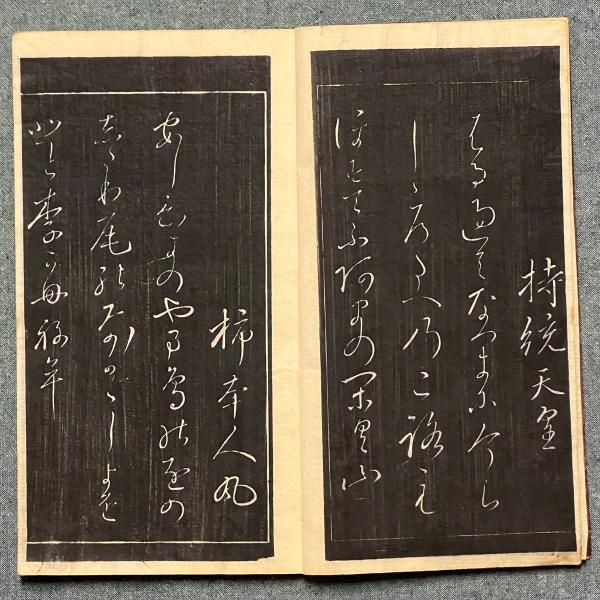 持統天皇
はる過てなつきにけら
しゝろたへのころも
ほすてふあまのかく山
柿本人丸
あしひきのやま鳥のをの
したり尾のなか〳〵しよを
ひとりかもねむ